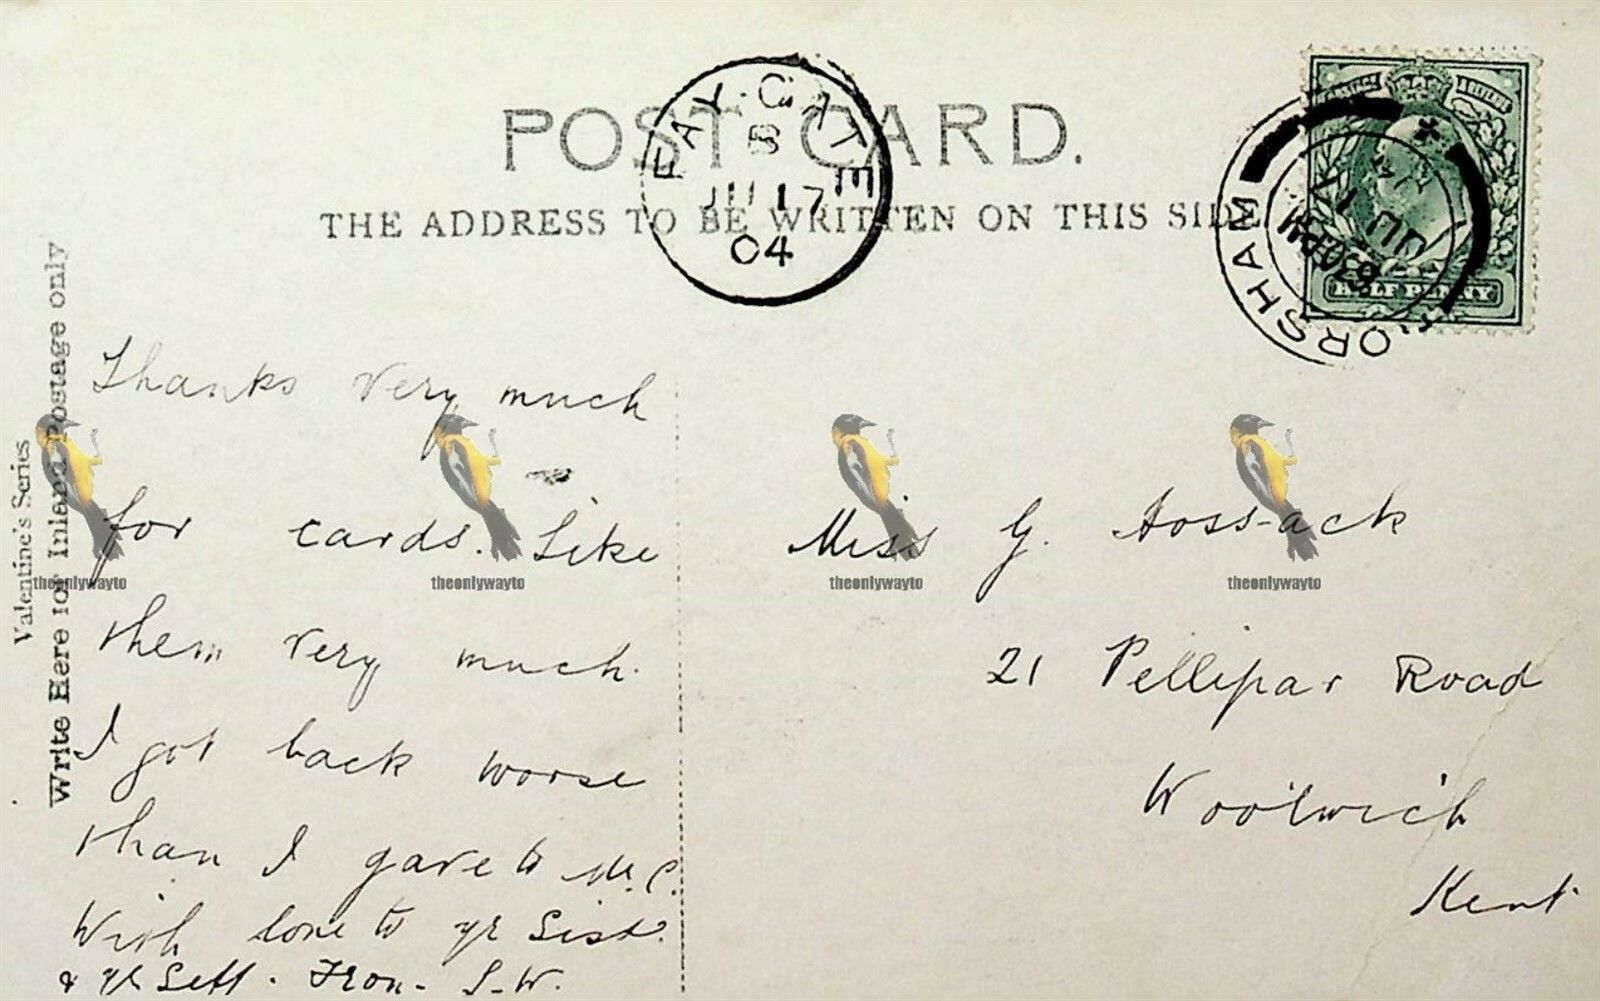 POST CARD.
THE ADDRESS TO BE WRITTEN ON THIS SIDE
FAY-GATE
B
JU 17
04
HORSHAM
630PM
JU 17
04
POSTAGE & REVENUE
HALF PENNY
Valentine's Series
Write Here for Inland Postage only
Thanks very much
for cards. Like
them very much.
I got back worse
than I gave to Mr. C.
With love to yr Sist.
& yr Self. From - S-W.
Miss G. Hoss-ack
21 Pellipar Road
Woolwich
Kent
theonlywayto
theonlywayto
theonlywayto
theonlywayto